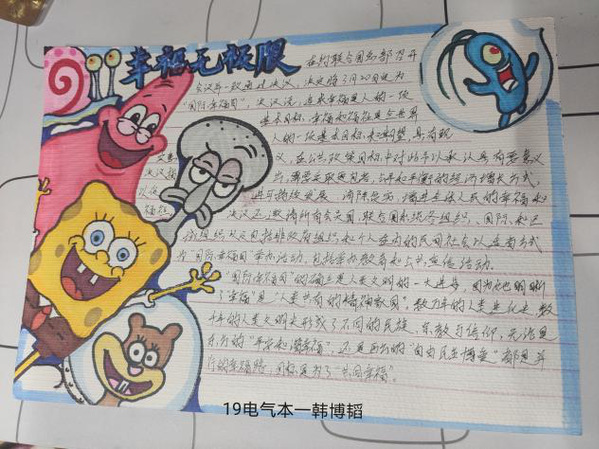 幸福无极限
在的联合国总部召开
会议并一致通过决议，决定将3月20日定为
“国际幸福日”，决议说，追求幸福是人的一项
基本目标，幸福和福祉是全世界
人的一项基本目标和期望，具有现
义，在公共政策目标中对此予以承认具有重要意义
决议强
为，需要采取更包容、公平和平衡的经济增长方式
进可持续发展，消除贫困，增进全体人民的幸福和
福祉。
决议还邀请所有会员国、联合国系统各组织、国际和区
域组织以及包括非政府组织和个人在内的民间社会以适当方式
为“国际幸福日”举办活动，包括举办教育和公共宣传活动。
“国际幸福日”的确立是人类文明的一大进步，因为它也明晰
了“幸福”是“人类共有的精神家园”。数万年的人类进化史，数
千年的人类文明史形成了不同的民族、宗教与信仰，无论是
东方的“平安和谐幸福”，还是西方的“自由民主博爱”都是并
行的幸福路，目标是为了“共同幸福”。
19电气本一韩博韬